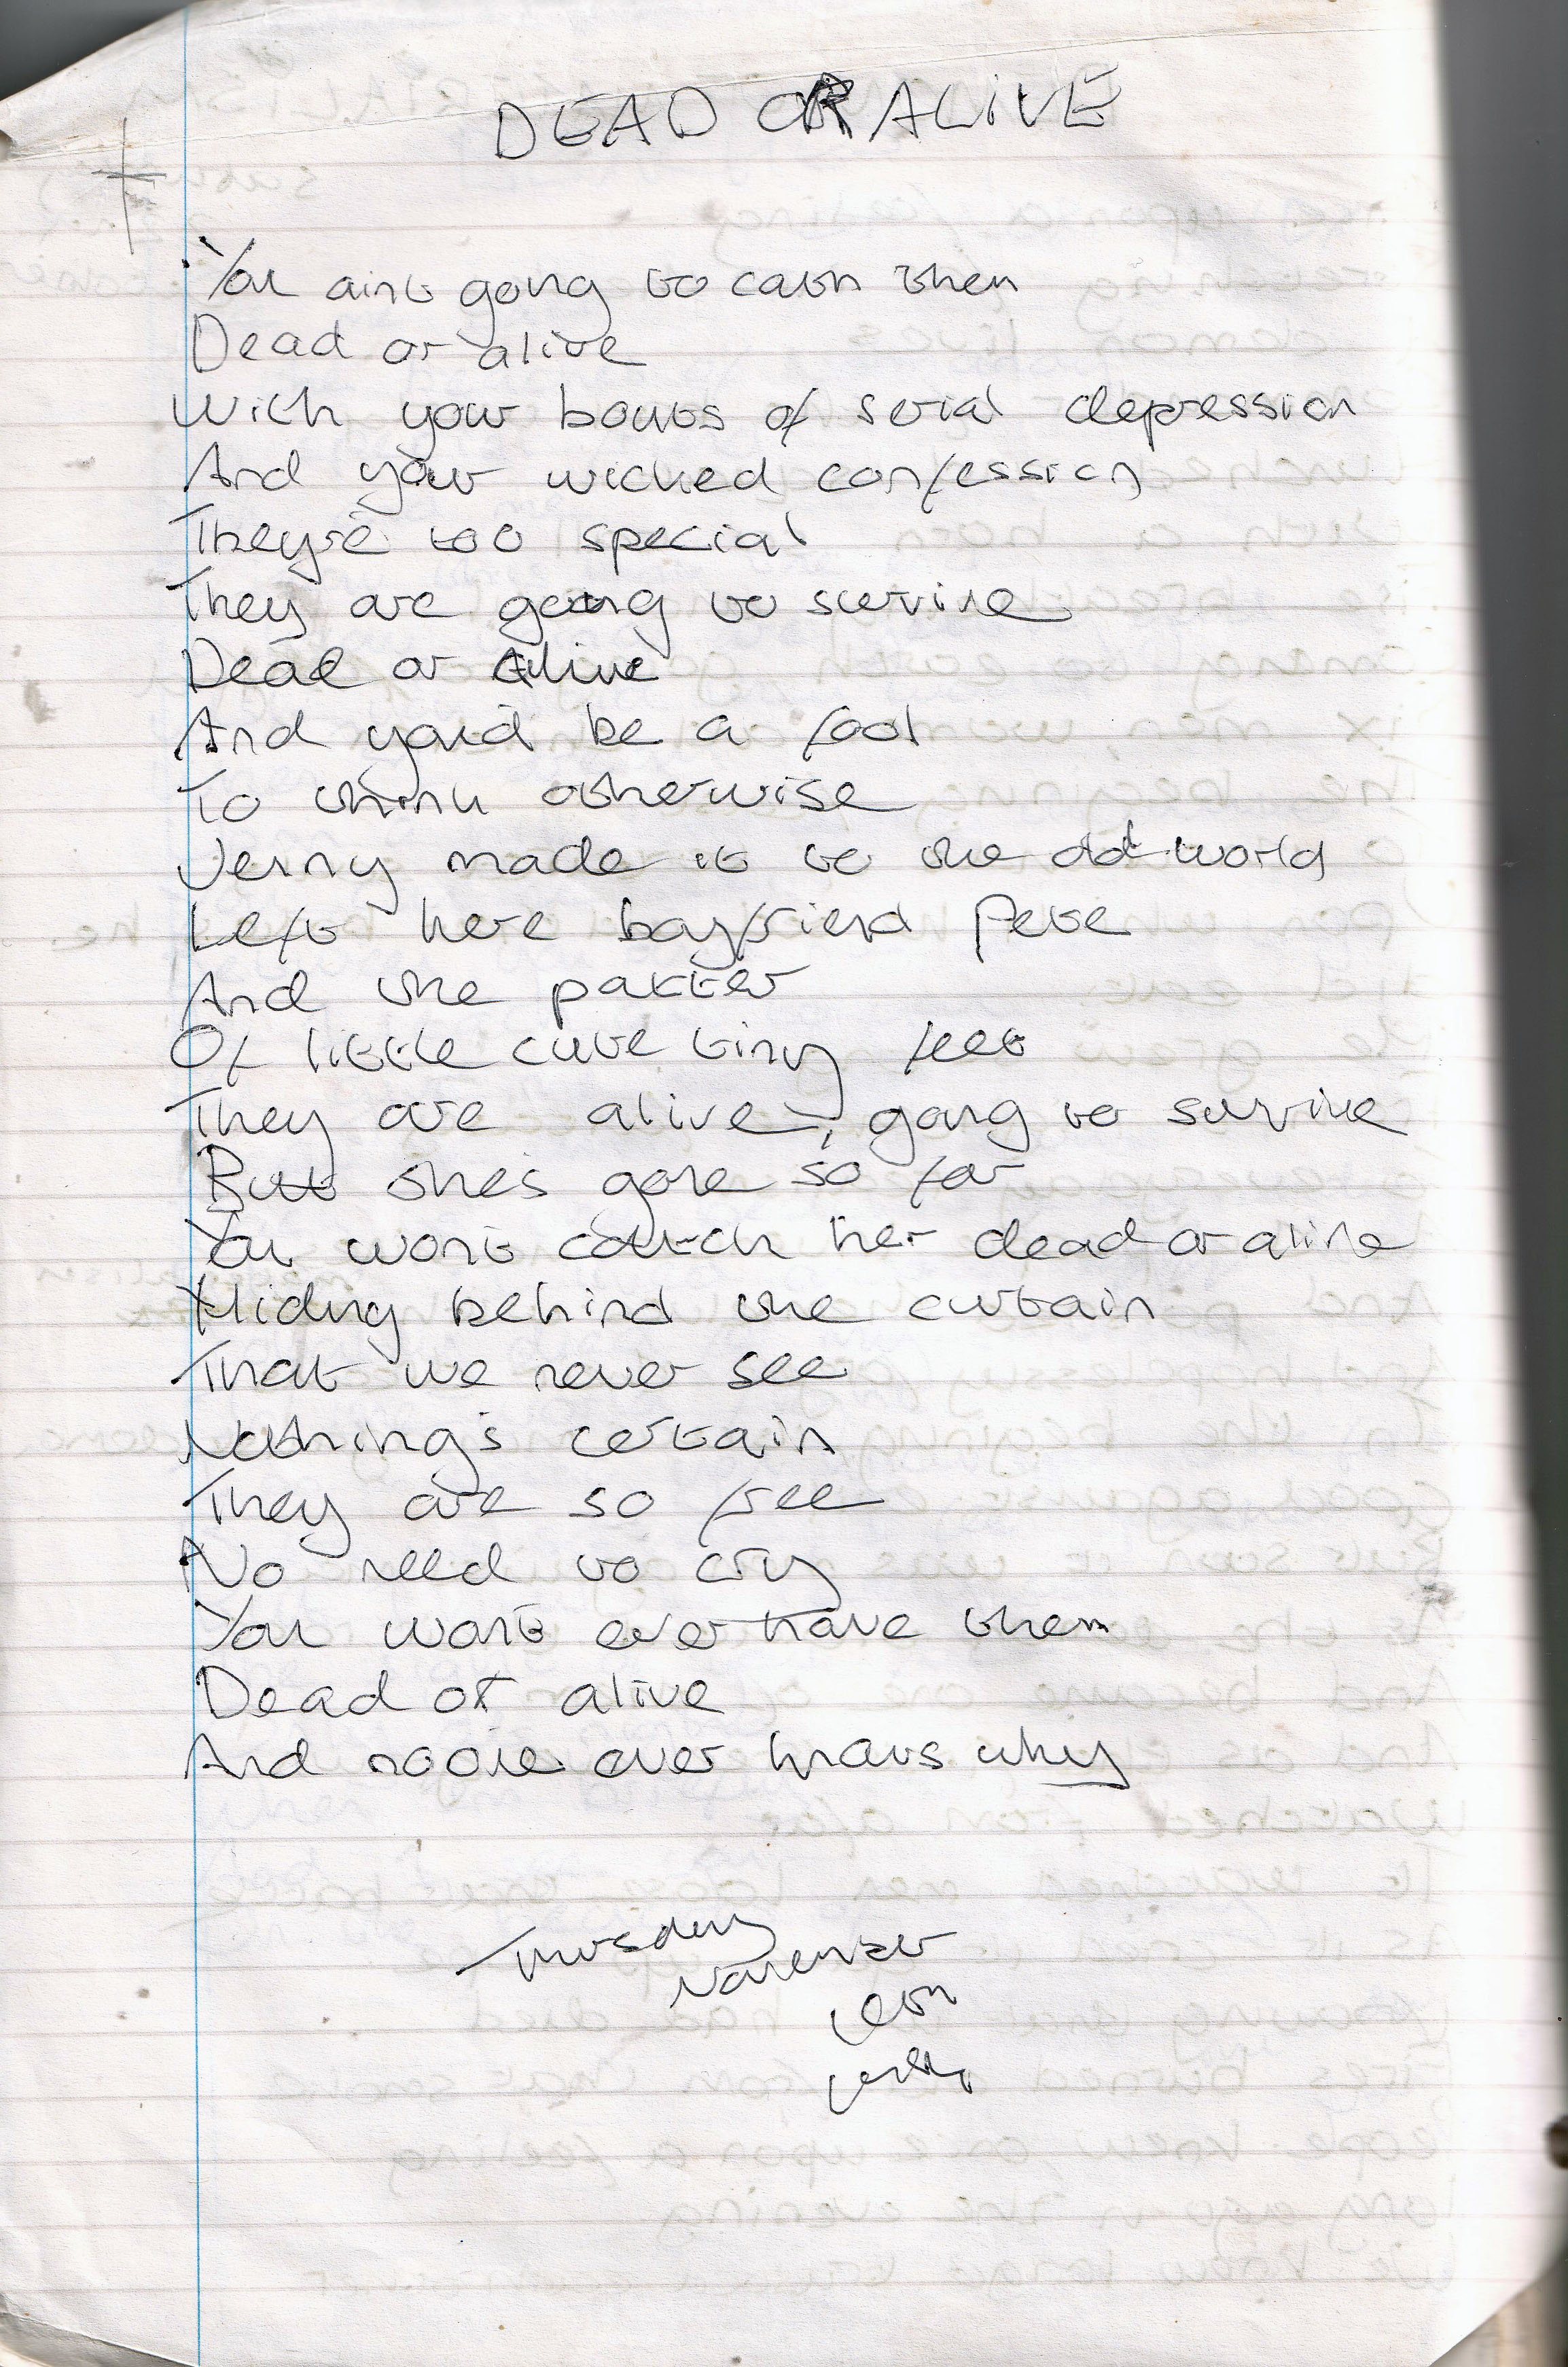 DEAD OR ALIVE
You aint going to catch them
Dead or alive
With your bouts of serial depression
And your wicked confession
They're too special
They are going to survive
Dead or Alive
And you'd be a fool
To think otherwise
Jenny made it to the odd world
Left here boyfriend Pete
And the patter
Of little cute tiny feet
They are alive, going to survive
But she's gone so far
You wont catch her dead or alive
Hiding behind the curtain
That we never see
Nothing's certain
They are so free
No need to cry
You wont ever have them
Dead or alive
And noone ever knows why
Thursday
November